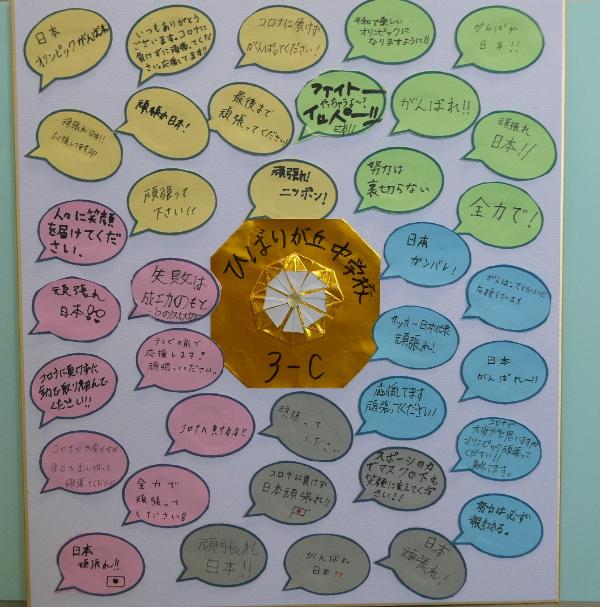 日本
オリンピックがんばれ
いつもありがとう
ございます。コロナに
負けずに頑張ってくだ
さい。応援してます!!
コロナに負けず
がんばってください!
平和で楽しい
オリンピックに
なりますように!!
がんばれ
日本!!
頑張れ日本!!
応援してます
頑張れ日本!
最後まで
頑張ってください!
ファイトー
やっちゃうよ〜?
イレベー!!
がんばれ!!
頑張れ
日本!!
頑張って
下さい!!
頑張れ!
ニッポン!
努力は
裏切らない
全力で!
人々に笑顔
を届けてくだ
さい.
失敗は
成功のもと
ひばりが丘中学校
3-C
日本
ガンバレ!
がんばってください!
応援しています!
頑張れ
日本!!
テレビの前で
応援します!
頑張ってください。
サッカー日本代表
頑張れ!
日本
がんばれ〜!!
コロナに負けずに
取り組んで
ください!!
コロナに負けるな!!
頑張って
ください
応援してます
頑張ってください!
コロナで
大変だと思いますが
オリンピック頑張って
ください!!
コロナで大変ですが
全力を出し切って
頑張ってください!
全力で
頑張って
ください!
コロナに負けず
日本頑張れ!!
スポーツの力
でマスクの下も
笑顔に変えてくだ
さい!!
努力は必ず
報われる。
日本
頑張れ!!
頑張れ
日本!!
がんばれ
日本!!
日本
頑張れ!